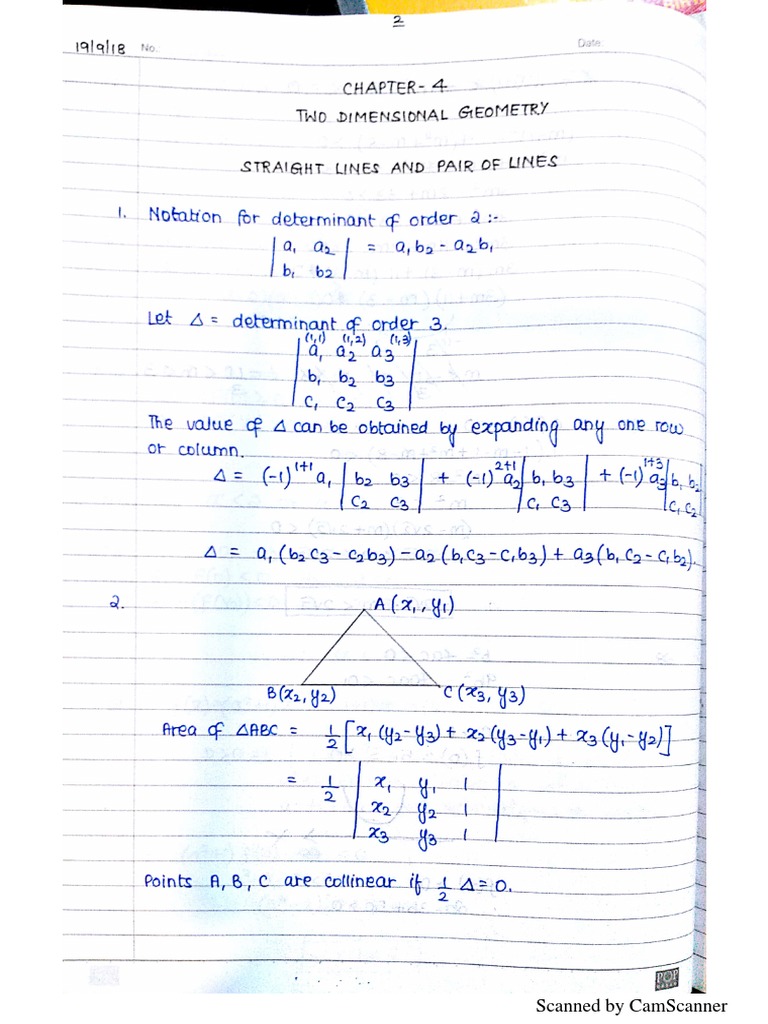 2
19/9/18 No. Date.
CHAPTER-4
TWO DIMENSIONAL GEOMETRY
STRAIGHT LINES AND PAIR OF LINES
1. Notation for determinant of order 2 :-
| a₁ a₂ | = a₁b₂ - a₂b₁
| b₁ b₂ |
Let Δ = determinant of order 3.
(1,1) (1,2) (1,3)
| a₁ a₂ a₃ |
| b₁ b₂ b₃ |
| c₁ c₂ c₃ |
The value of Δ can be obtained by expanding any one row
or column.
Δ = (-1)¹⁺¹ a₁ | b₂ b₃ | + (-1)²⁺¹ a₂ | b₁ b₃ | + (-1)¹⁺³ a₃ | b₁ b₂ |
| c₂ c₃ | | c₁ c₃ | | c₁ c₂ |
Δ = a₁(b₂c₃ - c₂b₃) - a₂(b₁c₃ - c₁b₃) + a₃(b₁c₂ - c₁b₂).
2. A(x₁, y₁)
B(x₂, y₂) C(x₃, y₃)
Area of ΔABC = 1/2 [x₁(y₂-y₃) + x₂(y₃-y₁) + x₃(y₁-y₂)]
= 1/2 | x₁ y₁ 1 |
| x₂ y₂ 1 |
| x₃ y₃ 1 |
Points A, B, C are collinear if 1/2 Δ = 0.
POP
Scanned by CamScanner